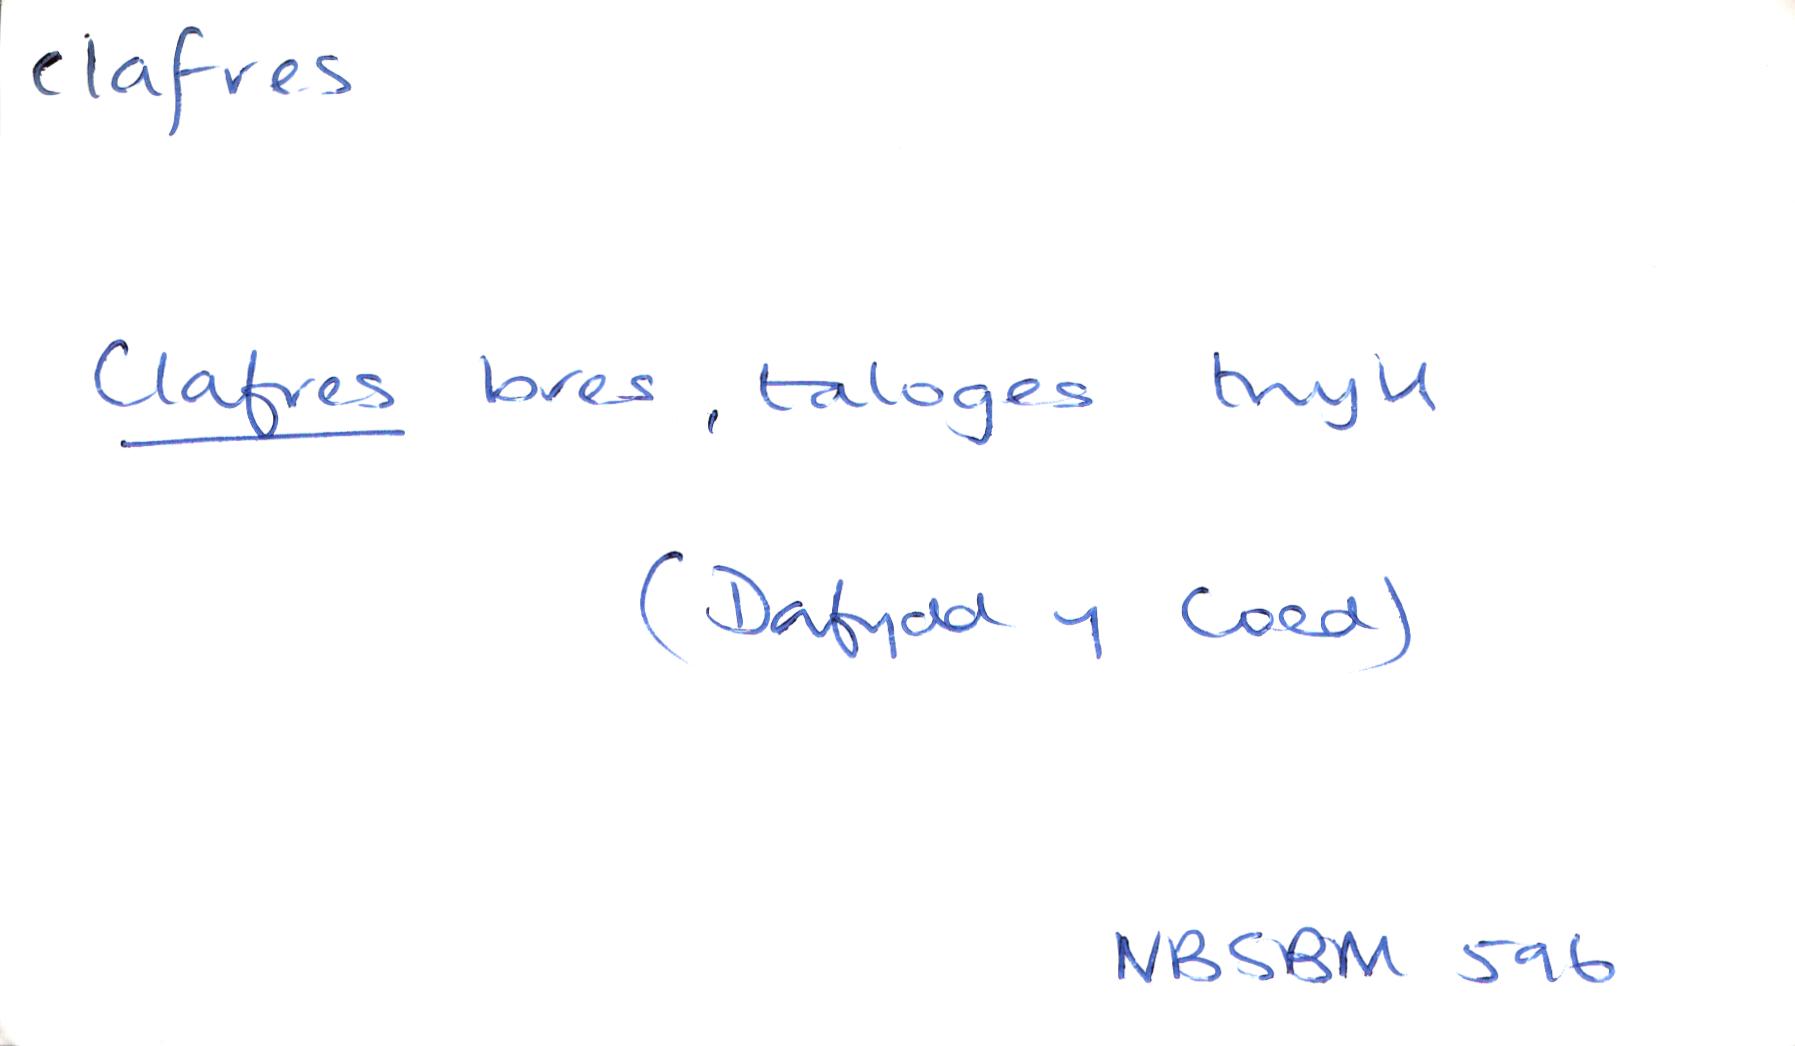 clafres
Clafres bres, taloges tnyll
(Dafydd y Coed)
NBSBM 596